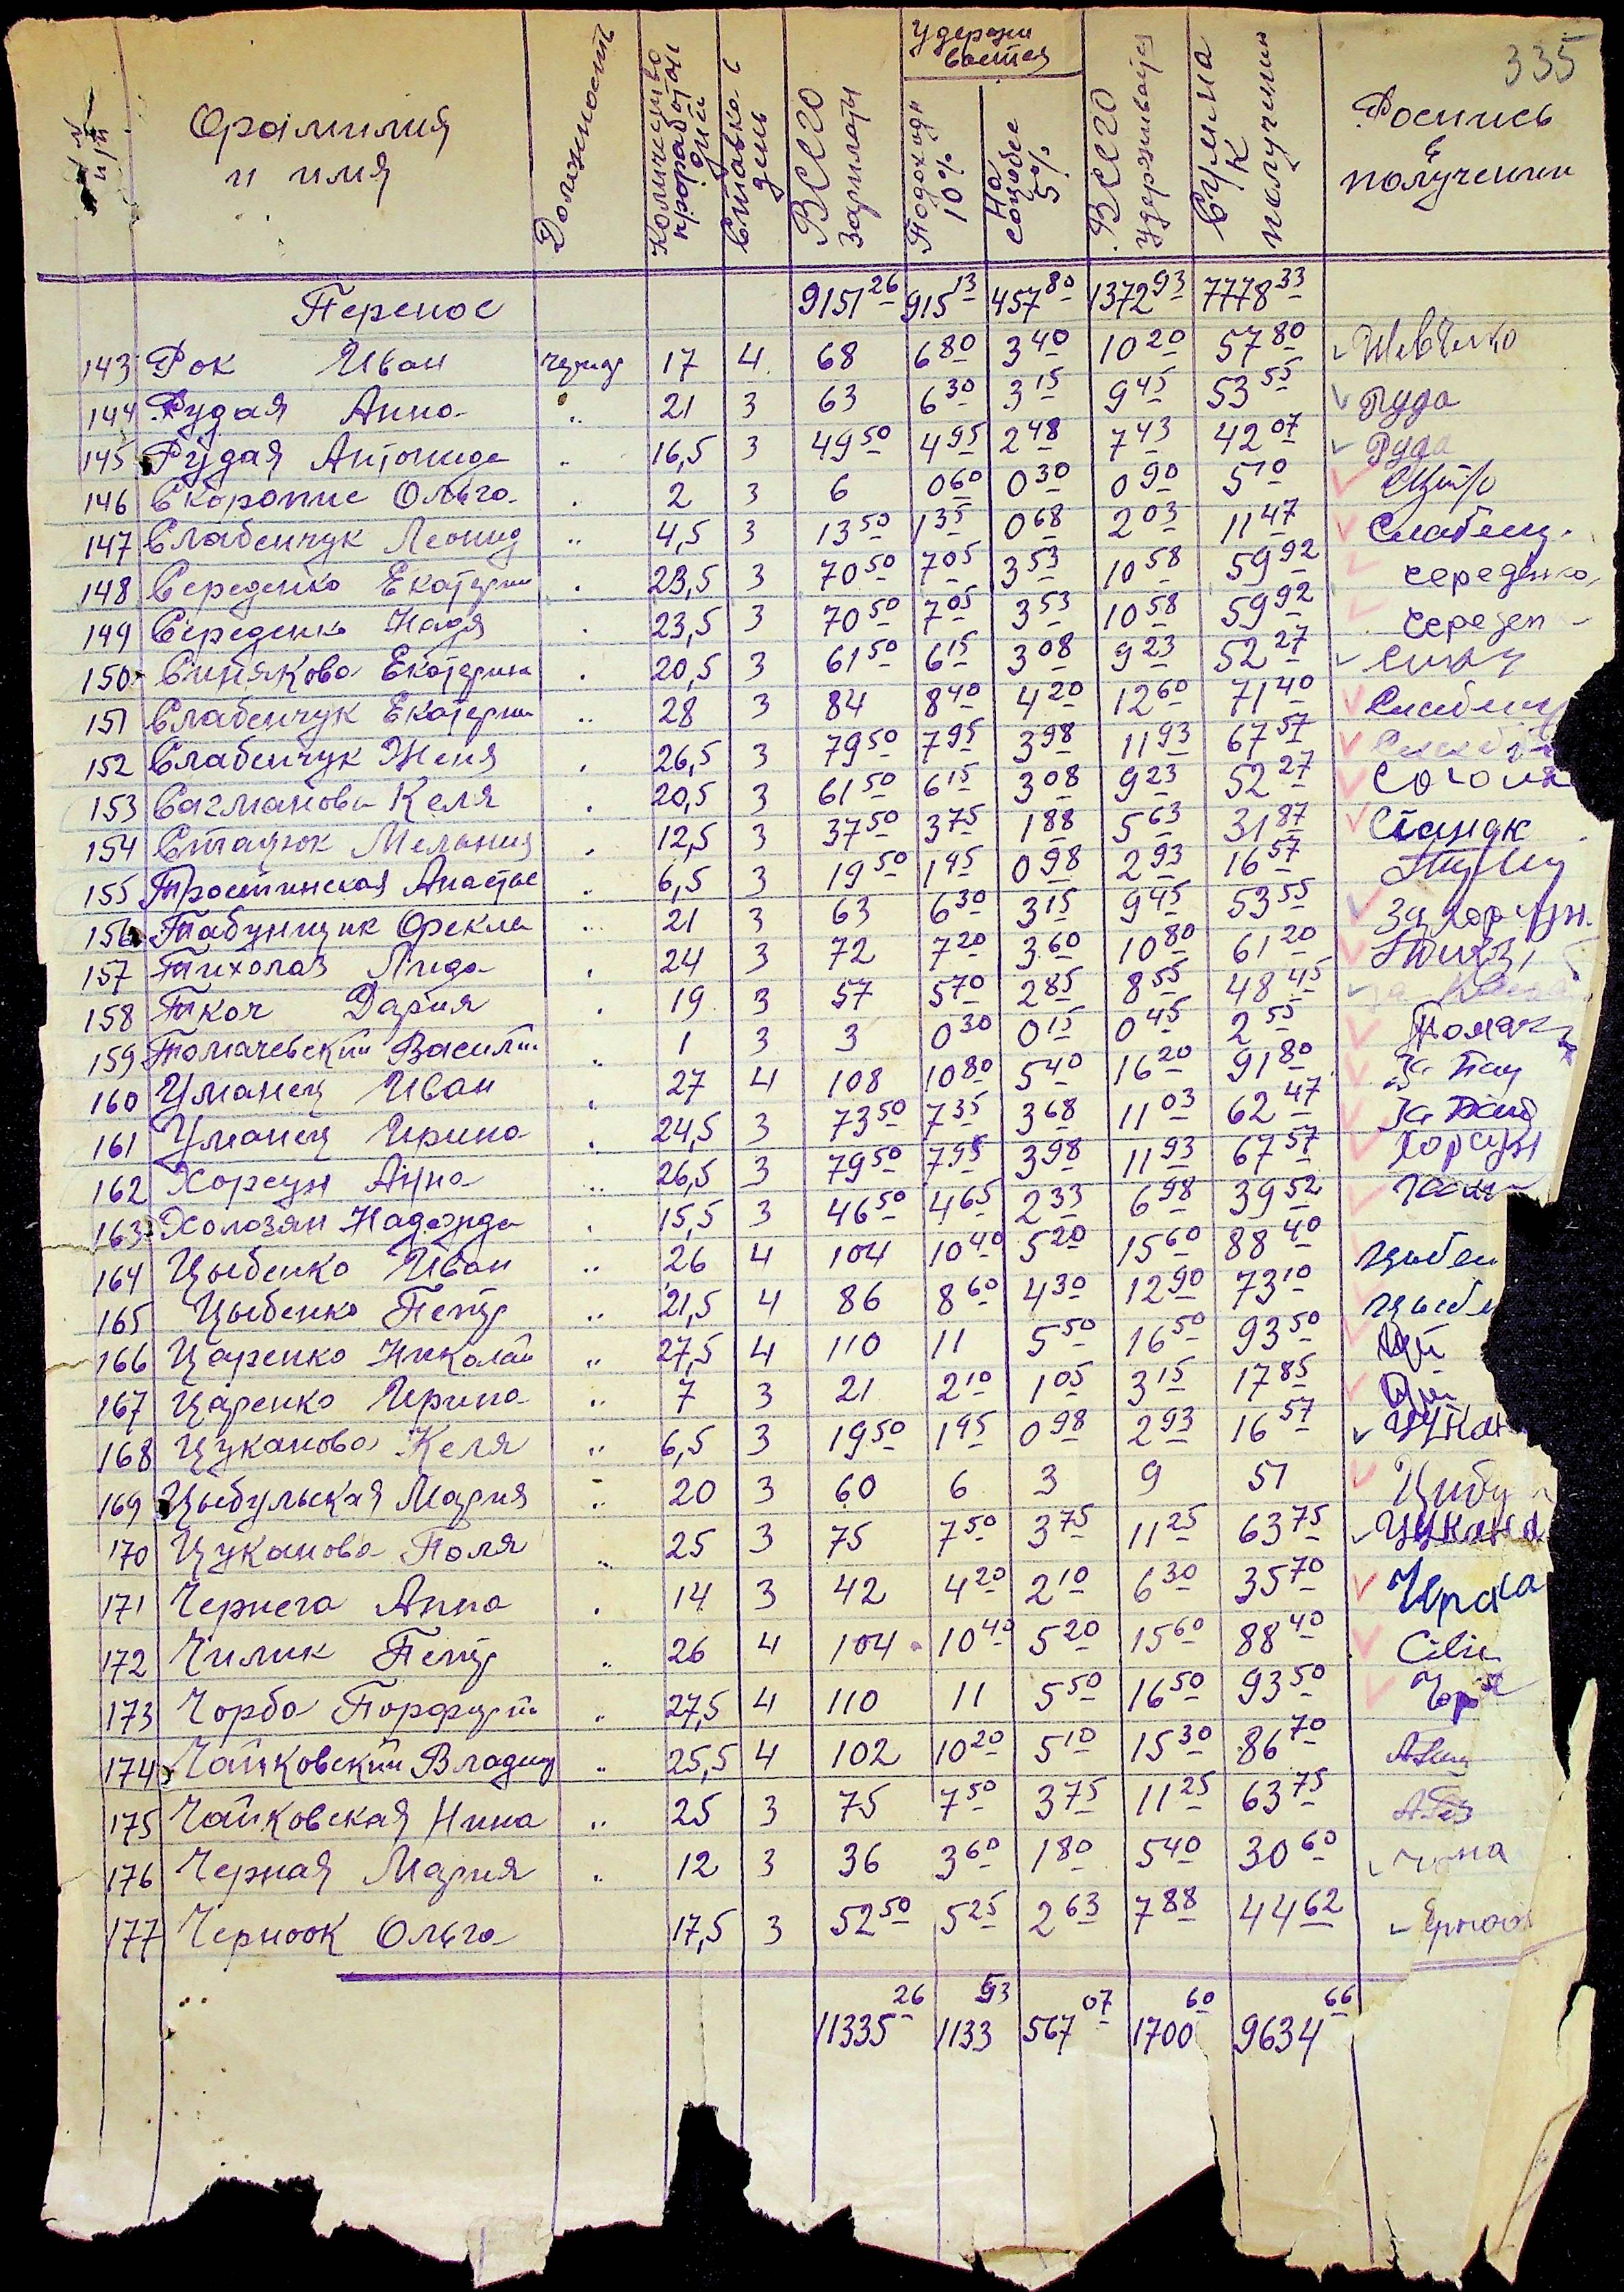 335
№ п/п Фамилия и имя Должность Количество проработан дней Ставка в день ВСЕГО зарплаты Удерживается Подоходн 10% На соцобес 5% ВСЕГО удерживаться Сумма к получении Роспись в получении
Перенос 9151 26 915 13 457 80 1372 93 7778 33
143 Рок Иван 17 4 68 6 80 3 40 10 20 57 80
144 Рудая Анна " 21 3 63 6 30 3 15 9 45 53 55 Руда
145 Рудая Антонида " 16,5 3 49 50 4 95 2 48 7 43 42 07 Руда
146 Скоропис Ольга " 2 3 6 0 60 0 30 0 90 5 10
147 Слабенчук Леонид " 4,5 3 13 50 1 35 0 68 2 03 11 47 Слабенч.
148 Середенко Екатерин " 23,5 3 70 50 7 05 3 53 10 58 59 92 Середенко
149 Середенко Надя " 23,5 3 70 50 7 05 3 53 10 58 59 92 Середен
150 Синякова Екатерина " 20,5 3 61 50 6 15 3 08 9 23 52 27
151 Слабенчук Екатерин " 28 3 84 8 40 4 20 12 60 71 40
152 Слабенчук Женя " 26,5 3 79 50 7 95 3 98 11 93 67 57
153 Сагманова Келя " 20,5 3 61 50 6 15 3 08 9 23 52 27
154 Стацюк Мелания " 12,5 3 37 50 3 75 1 88 5 63 31 87
155 Тростинская Анастас " 6,5 3 19 50 1 95 0 98 2 93 16 57
156 Табунщик Фекла " 21 3 63 6 30 3 15 9 45 53 55
157 Тихолаз Лида " 24 3 72 7 20 3 60 10 80 61 20
158 Ткач Дария " 19 3 57 5 70 2 85 8 55 48 45
159 Томачевский Василий " 1 3 3 0 30 0 15 0 45 2 55
160 Уманец Иван " 27 4 108 10 80 5 40 16 20 91 80
161 Уманец Ирина " 24,5 3 73 50 7 35 3 68 11 03 62 47
162 Хорсун Анна " 26,5 3 79 50 7 95 3 98 11 93 67 57 Хорсун
163 Холозян Надежда " 15,5 3 46 50 4 65 2 33 6 98 39 52
164 Цыбенко Иван " 26 4 104 10 40 5 20 15 60 88 40 Цыбен
165 Цыбенко Петр " 21,5 4 86 8 60 4 30 12 90 73 10
166 Царенко Николай " 27,5 4 110 11 5 50 16 50 93 50
167 Царенко Ирина " 7 3 21 2 10 1 05 3 15 17 85
168 Цуканова Келя " 6,5 3 19 50 1 95 0 98 2 93 16 57 Цукан
169 Цыбульская Мария " 20 3 60 6 3 9 51 Цибу
170 Цуканова Поля " 25 3 75 7 50 3 75 11 25 63 75 Цукана
171 Чернега Анна " 14 3 42 4 20 2 10 6 30 35 70
172 Чилик Петр " 26 4 104 10 40 5 20 15 60 88 40
173 Чорба Порфирий " 27,5 4 110 11 5 50 16 50 93 50
174 Чайковский Владим " 25,5 4 102 10 20 5 10 15 30 86 70
175 Чайковская Нина " 25 3 75 7 50 3 75 11 25 63 75
176 Черная Мария " 12 3 36 3 60 1 80 5 40 30 60
177 Черноок Ольга 17,5 3 52 50 5 25 2 63 7 88 44 62
11335 26 1133 53 567 07 1700 60 9634 66